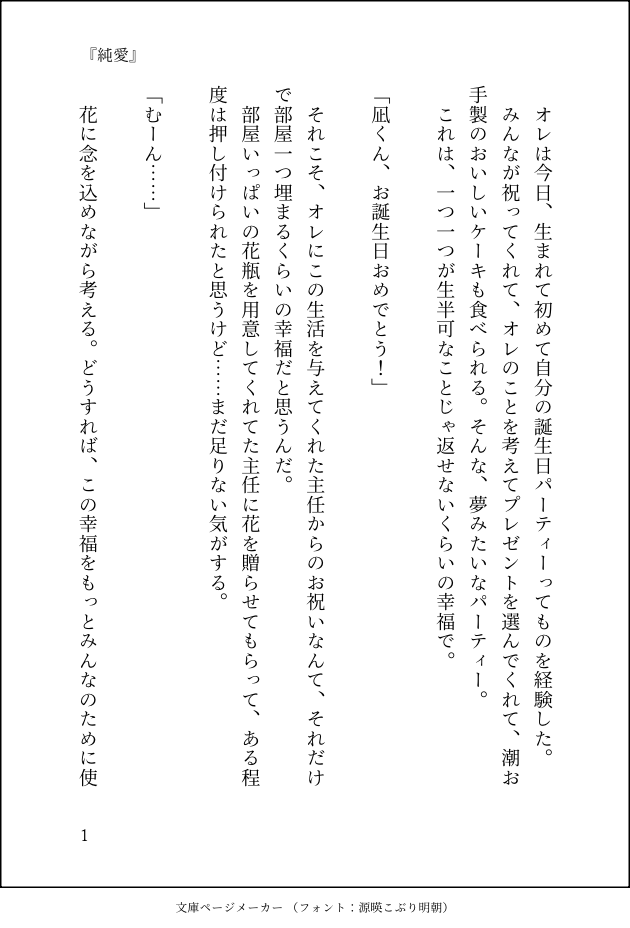 『純愛』
　オレは今日、生まれて初めて自分の誕生日パーティーってものを経験した。
　みんなが祝ってくれて、オレのことを考えてプレゼントを選んでくれて、潮お
手製のおいしいケーキも食べられる。そんな、夢みたいなパーティー。
　これは、一つ一つが生半可なことじゃ返せないくらいの幸福で。
「凪くん、お誕生日おめでとう！」
　それこそ、オレにこの生活を与えてくれた主任からのお祝いなんて、それだけ
で部屋一つ埋まるくらいの幸福だと思うんだ。
　部屋いっぱいの花瓶を用意してくれてた主任に花を贈らせてもらって、ある程
度は押し付けられたと思うけど……まだ足りない気がする。
「むーん……」
　花に念を込めながら考える。どうすれば、この幸福をもっとみんなのために使
1
文庫ページメーカー（フォント：源暎こぶり明朝）